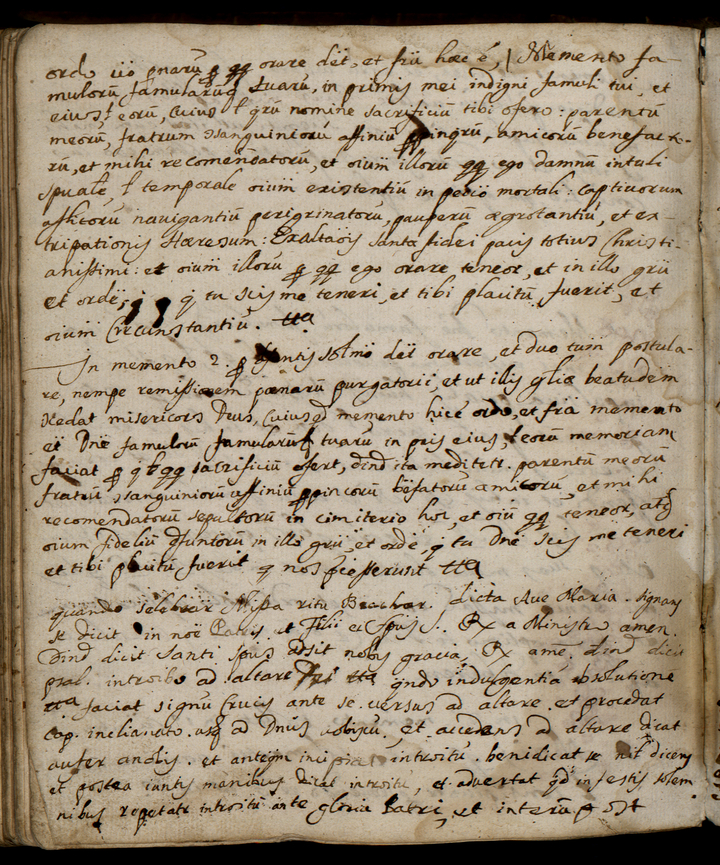 ordo iīo pnarū p qq orare dēt, et frīi hæc ē, / Memento fa-
mulorū famularūq tuarū, in primis mei indigni famuli tui, et
eius, l eorū, cuius l qrū nomine sacrificiū tibi ofero: parentū
meorū, fratrum ɔsanguiniorū affiniū ppinqrū, amicorū benefacto-
rū, et mihi recomēndatorū, et oīum illorū qq ego damnū intuli
spūale, l temporale oīum existentiū in peccīo mortali: captivorum
aflictorū navigantiū perigrinatorū, pauperū ægrotantiū, et ex-
tripationis Hæresum: Exaltaōis santa fidei pacis totius Christi-
anissimi: et oīum illorū p qq ego orare teneor, et in illo grū
et ordē, q tu scis me teneri, et tibi placitū fuerit, et
oīum Circunstantiū. tta
In memento 2. p dēt orare, et duo tum postula-
re, nempe remissionem pœnarū purgatorii, et ut illis glīæ beatudem
ɔcedat misericors Deus, Cuius memento hic ē ordo, et frīa memento
et Dnē famulorū famularūq tuarū in pīs eius, l eorū memoriam
faciat p qbqq sacrificiū ofert, dind ita meditetr. parentū meorū
fratrū ɔsanguiniorū affiniū ppincorū bīfatorū amicorū, et mihi
recomendatorū sepultorū in cimiterio hoc, et oīū qq teneor, atq
oīum fidelīu dfuntorū in illo grū, et ordē, q tu Dnē scis me teneri
et tibi placitū fuerit q nos pcesserunt tta
quando selebratr Missa ritu Brachar. dicta Ave Maria. signans
se dicit in noē Patris, et Filii et Spūs S. Rx a Ministro amen.
Dind dicit santi spūs adsit nobis gracia, Rx amē, dind dicit
psal. introibo ad altare Dei tta qndo indulgentiā absolutionē
tta faciat signū Crucis ante se versus ad altare et procedat
Cap. inclinato usq ad Dnūs vobiscū, et accedens ad altare dicat
aufer anobis. et anteqm incipiat introitū benidicat se nīl dicens
et postea iuntis manibus dicat introitū, et advertat qd in festis solem
nibus repetatr introitū ante gloria Patri, et interū post